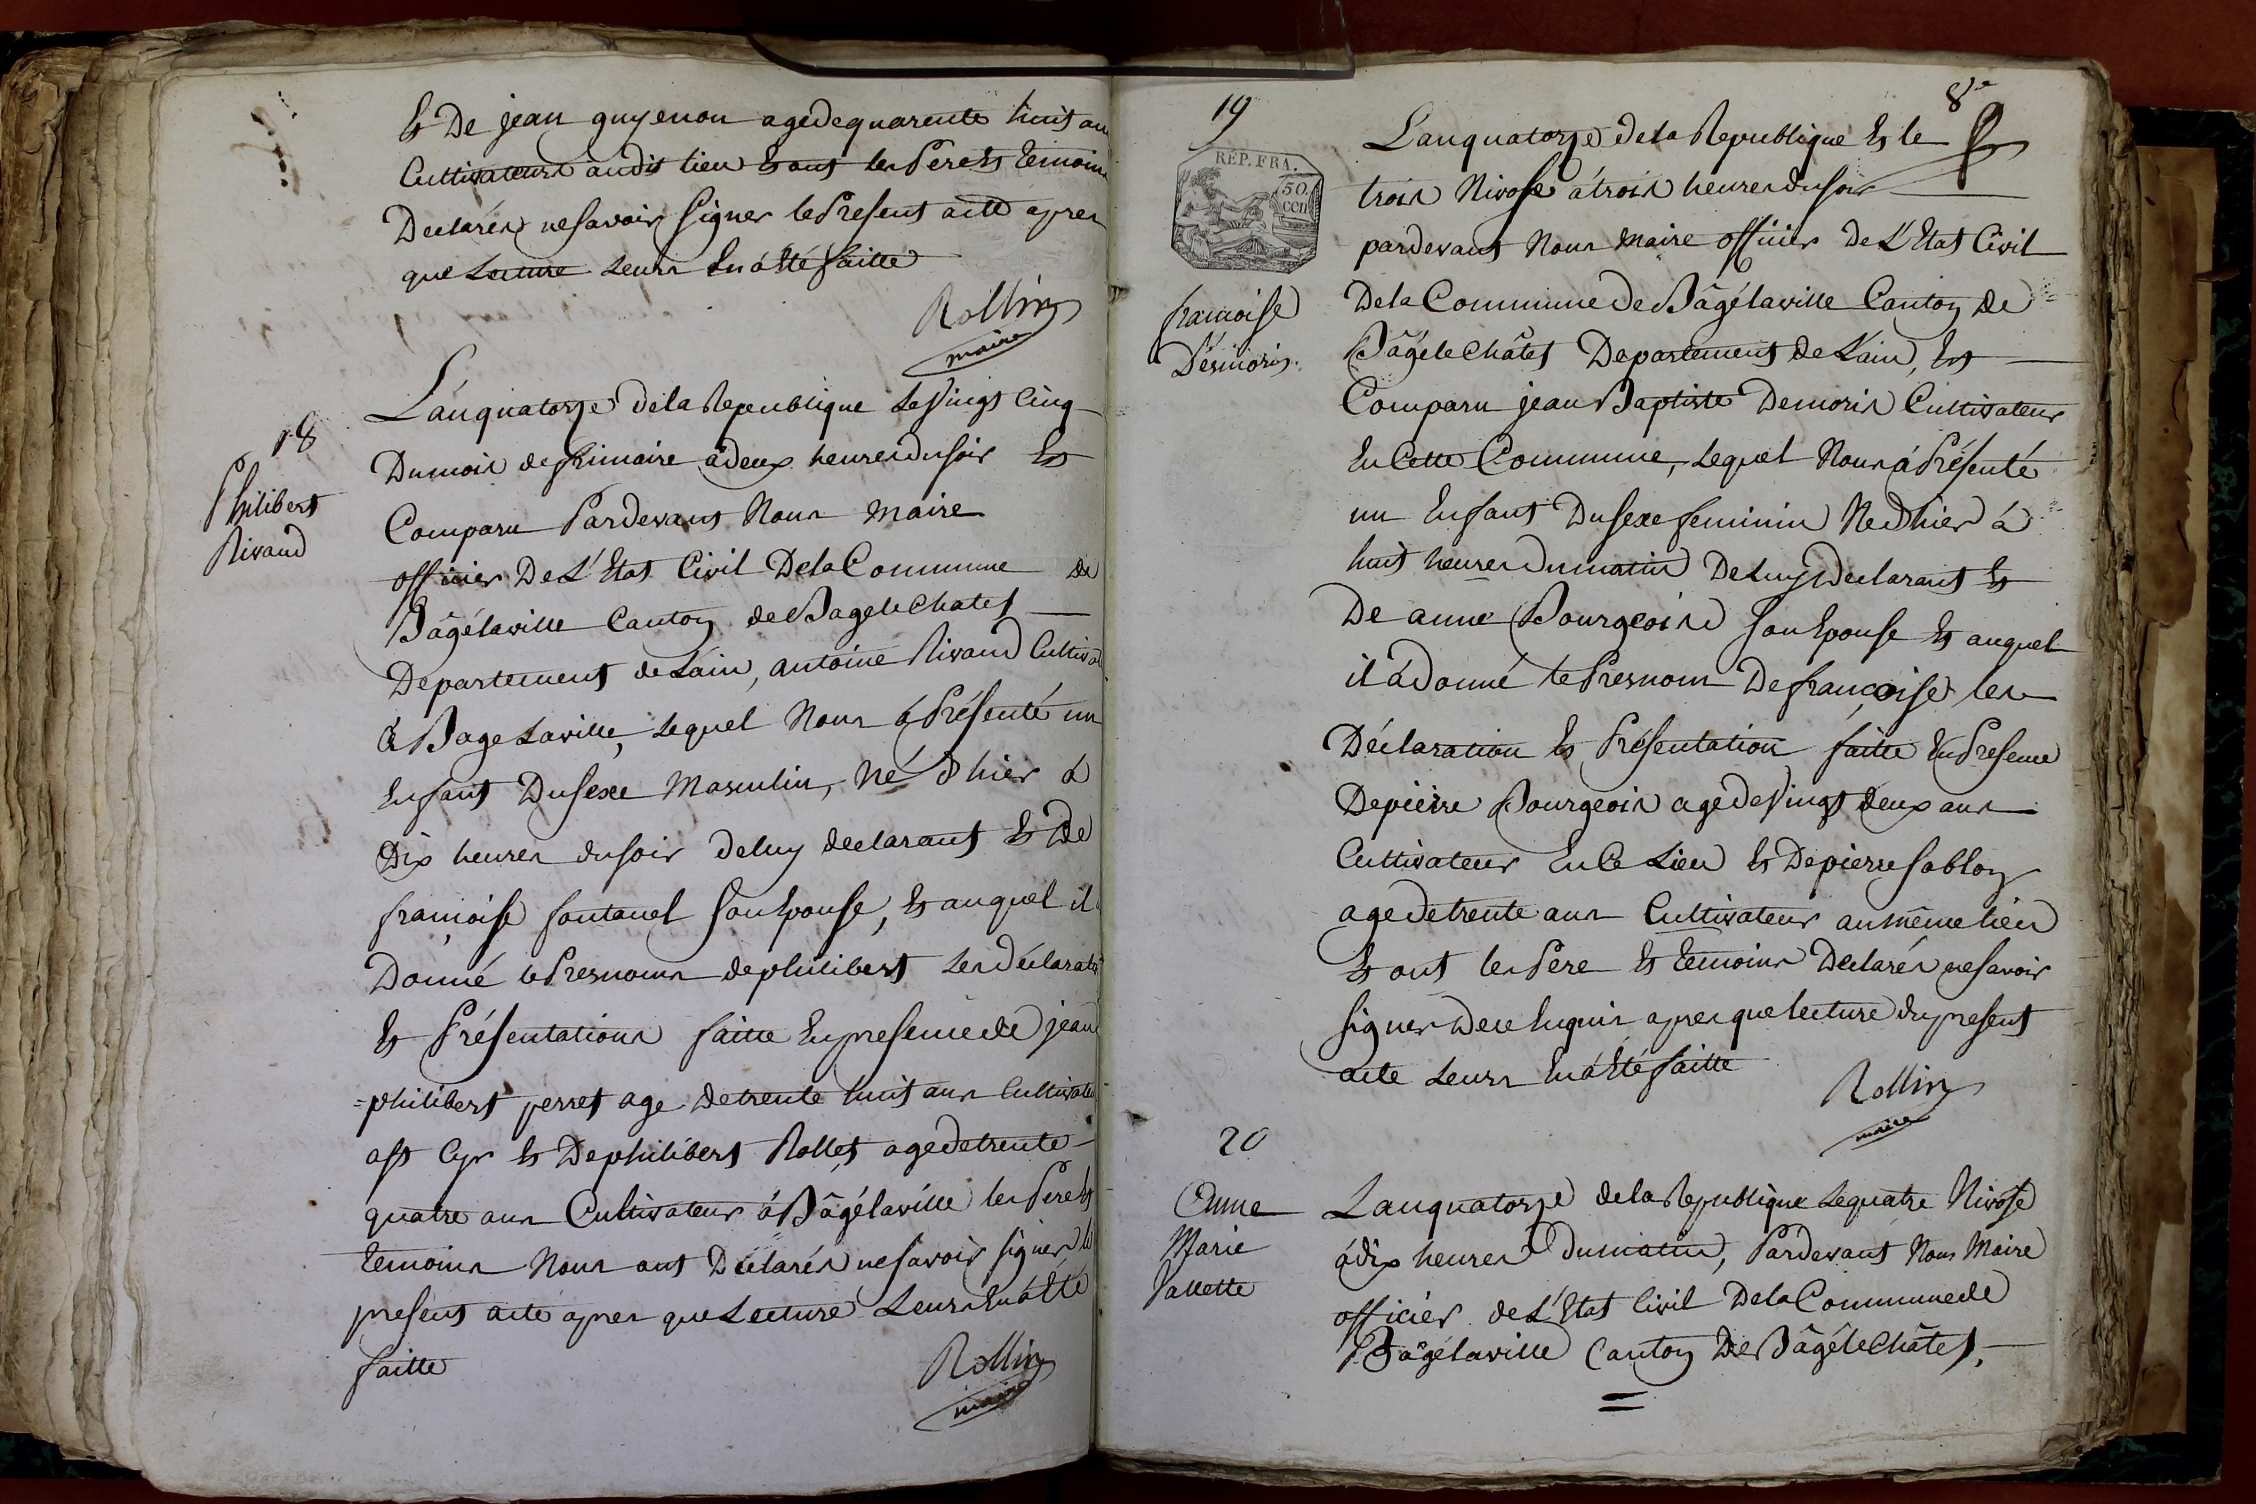 Et De jean guyenon agé de quarente huit an
Cultivateurs audit lieu Et ont les Pere Et temoins
Declarés ne Savoir Signer le Present acte apres
que Lecture Leurs En á Eté faitte
Rollin
maire
18
Philibert
Rivaud
L'an quatorze de la Republique Le Vingt Cinq
Du mois de frimaire á deux heures du soir Est
Comparu Pardevant Nous Maire
officier De L'Etat Civil De la Commune de
Bâgélaville Canton de Bagelechatel
Departement de L'ain, antoine Rivaud Cultivat
á Bagelaville, Lequel Nous á Présenté un
Enfant Du Sexe Masculin, Né D'hier á
Dix heures du soir de luy declarant Et De
françoise fontanel Son Epouse, Et auquel il
Donné le Presnoms de philibert Les déclarati
Et Présentations faitte En presence de jean
=philibert perret agé de trente huit ans Cultivate
a St Cyr Et De philibert Rollet agé de trente
quatre ans Cultivateur á Bâgélaville les Pere Et
temoins Nous ont Déclarés ne savoir signer le
present acte apres que Lecture Leurs En á Eté
faitte
Rollin
maire
8e
19
REP. FRA.
50.
CEN
francoise
Desmoris.
L'an quatorze de la Republique Et le
trois Nivose á trois heures du soir
pardevant Nous maire officier De L'Etat Civil
De la Commune de Bâgélaville Canton de
Bâgélechâtel Departement de L'ain, Est
Comparu jean Baptiste Demoris Cultivateur
En Cette Commune, Lequel Nous á Présenté
un Enfant Du sexe feminin Né D'hier á
huit heures du matin De Luy declarant Et
De anne Bourgeoise Son Epouse Et auquel
il á Donné le Presnom De françoise les
Déclaration Et Présentation faitte En Presence
De pierre Bourgeois agé de Vingt deux ans
Cultivateur En Ce Lieu Et De pierre Sablon
agé de trente ans Cultivateur au même lieu
Et ont les Pere Et temoins Declarés ne savoir
signer De ce Enquis apres que lecture du present
acte Leurs En á Eté faitte
Rollin
maire
20
Anne
Marie
Pallette
L'an quatorze de la Republique Le quatre Nivose
á dix heures du matin, Pardevant Nous Maire
officier de L'Etat Civil De la Commune de
Bâgélaville Canton De Bâgélechâtel,